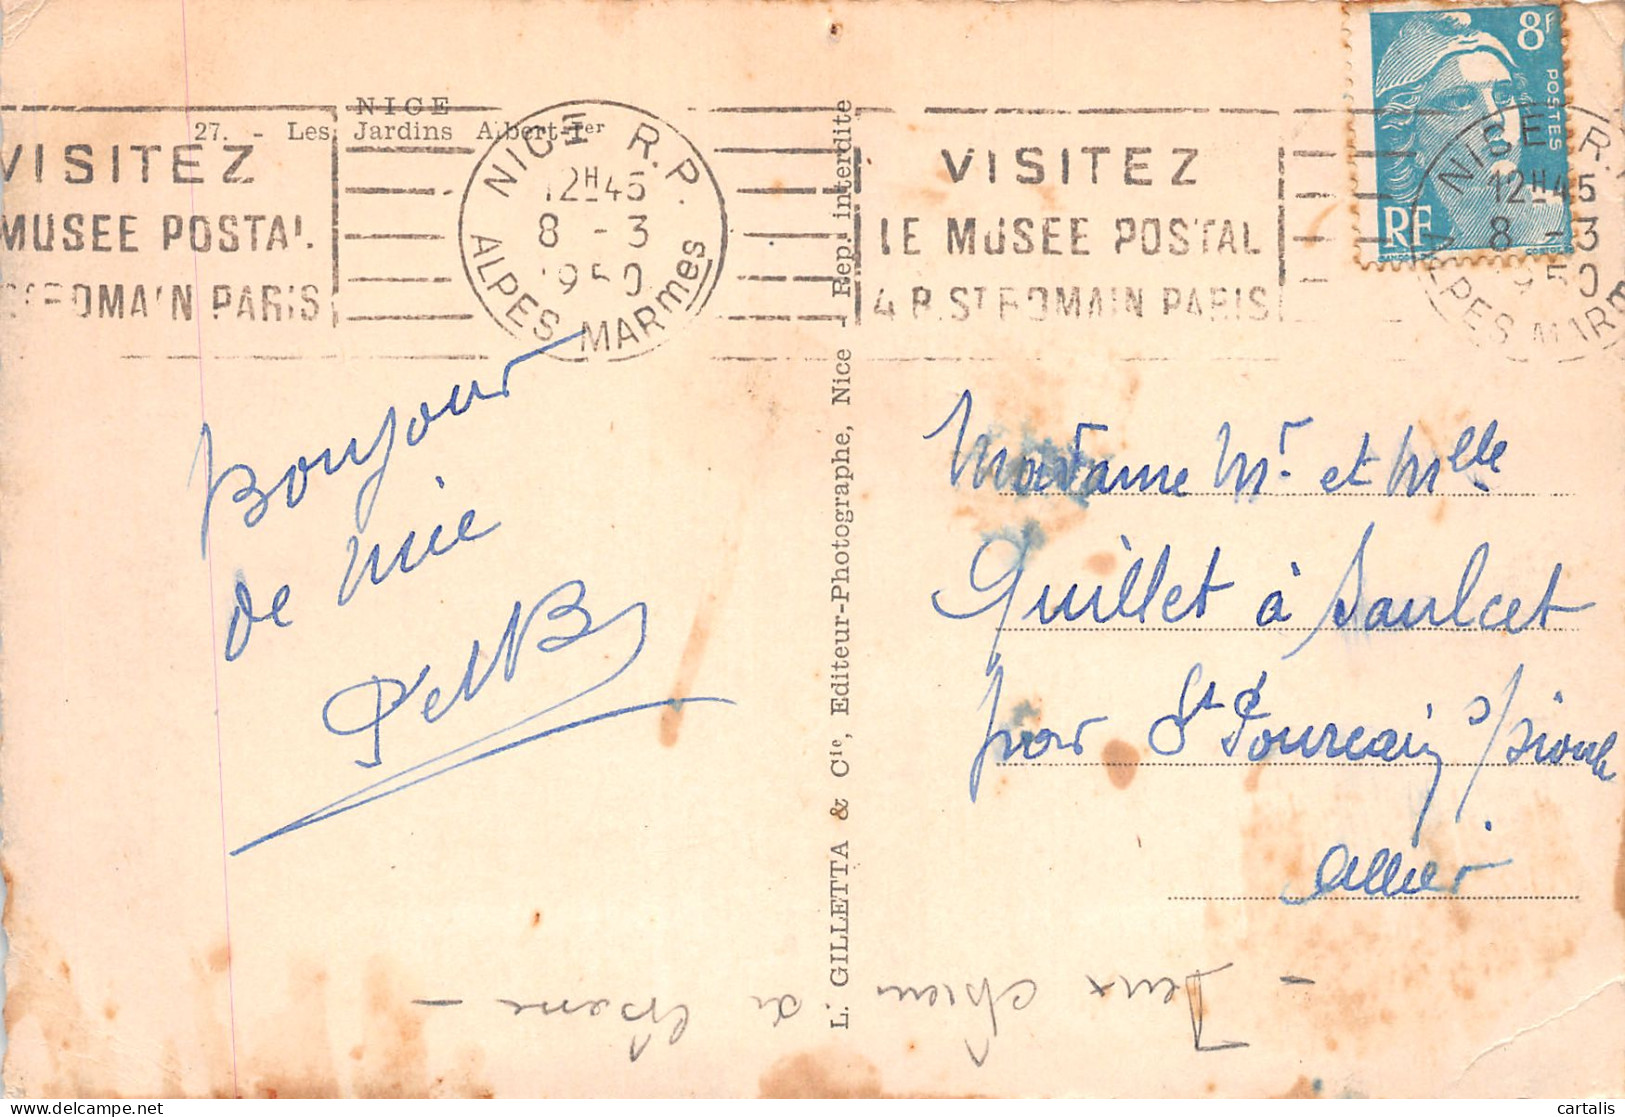 NICE
27. - Les Jardins Albert-Ier
VISITEZ
MUSEE POSTAL
ST ROMAIN PARIS
NICE R.P.
12H45
8 - 3
1950
ALPES MARmes
VISITEZ
LE MUSEE POSTAL
4 R. ST ROMAIN PARIS
8f
POSTES
RF
NICE R.
12H45
8 - 3
1950
ALPES MAR
Bonjour
de Nice
L. GILLETTA & Cie, Editeur-Photographe, Nice - Rep. interdite
Madame Mr. et Mlle
Quillet à Saulcet
par St Pourçain s/Sioule
Allier
- Deux chien